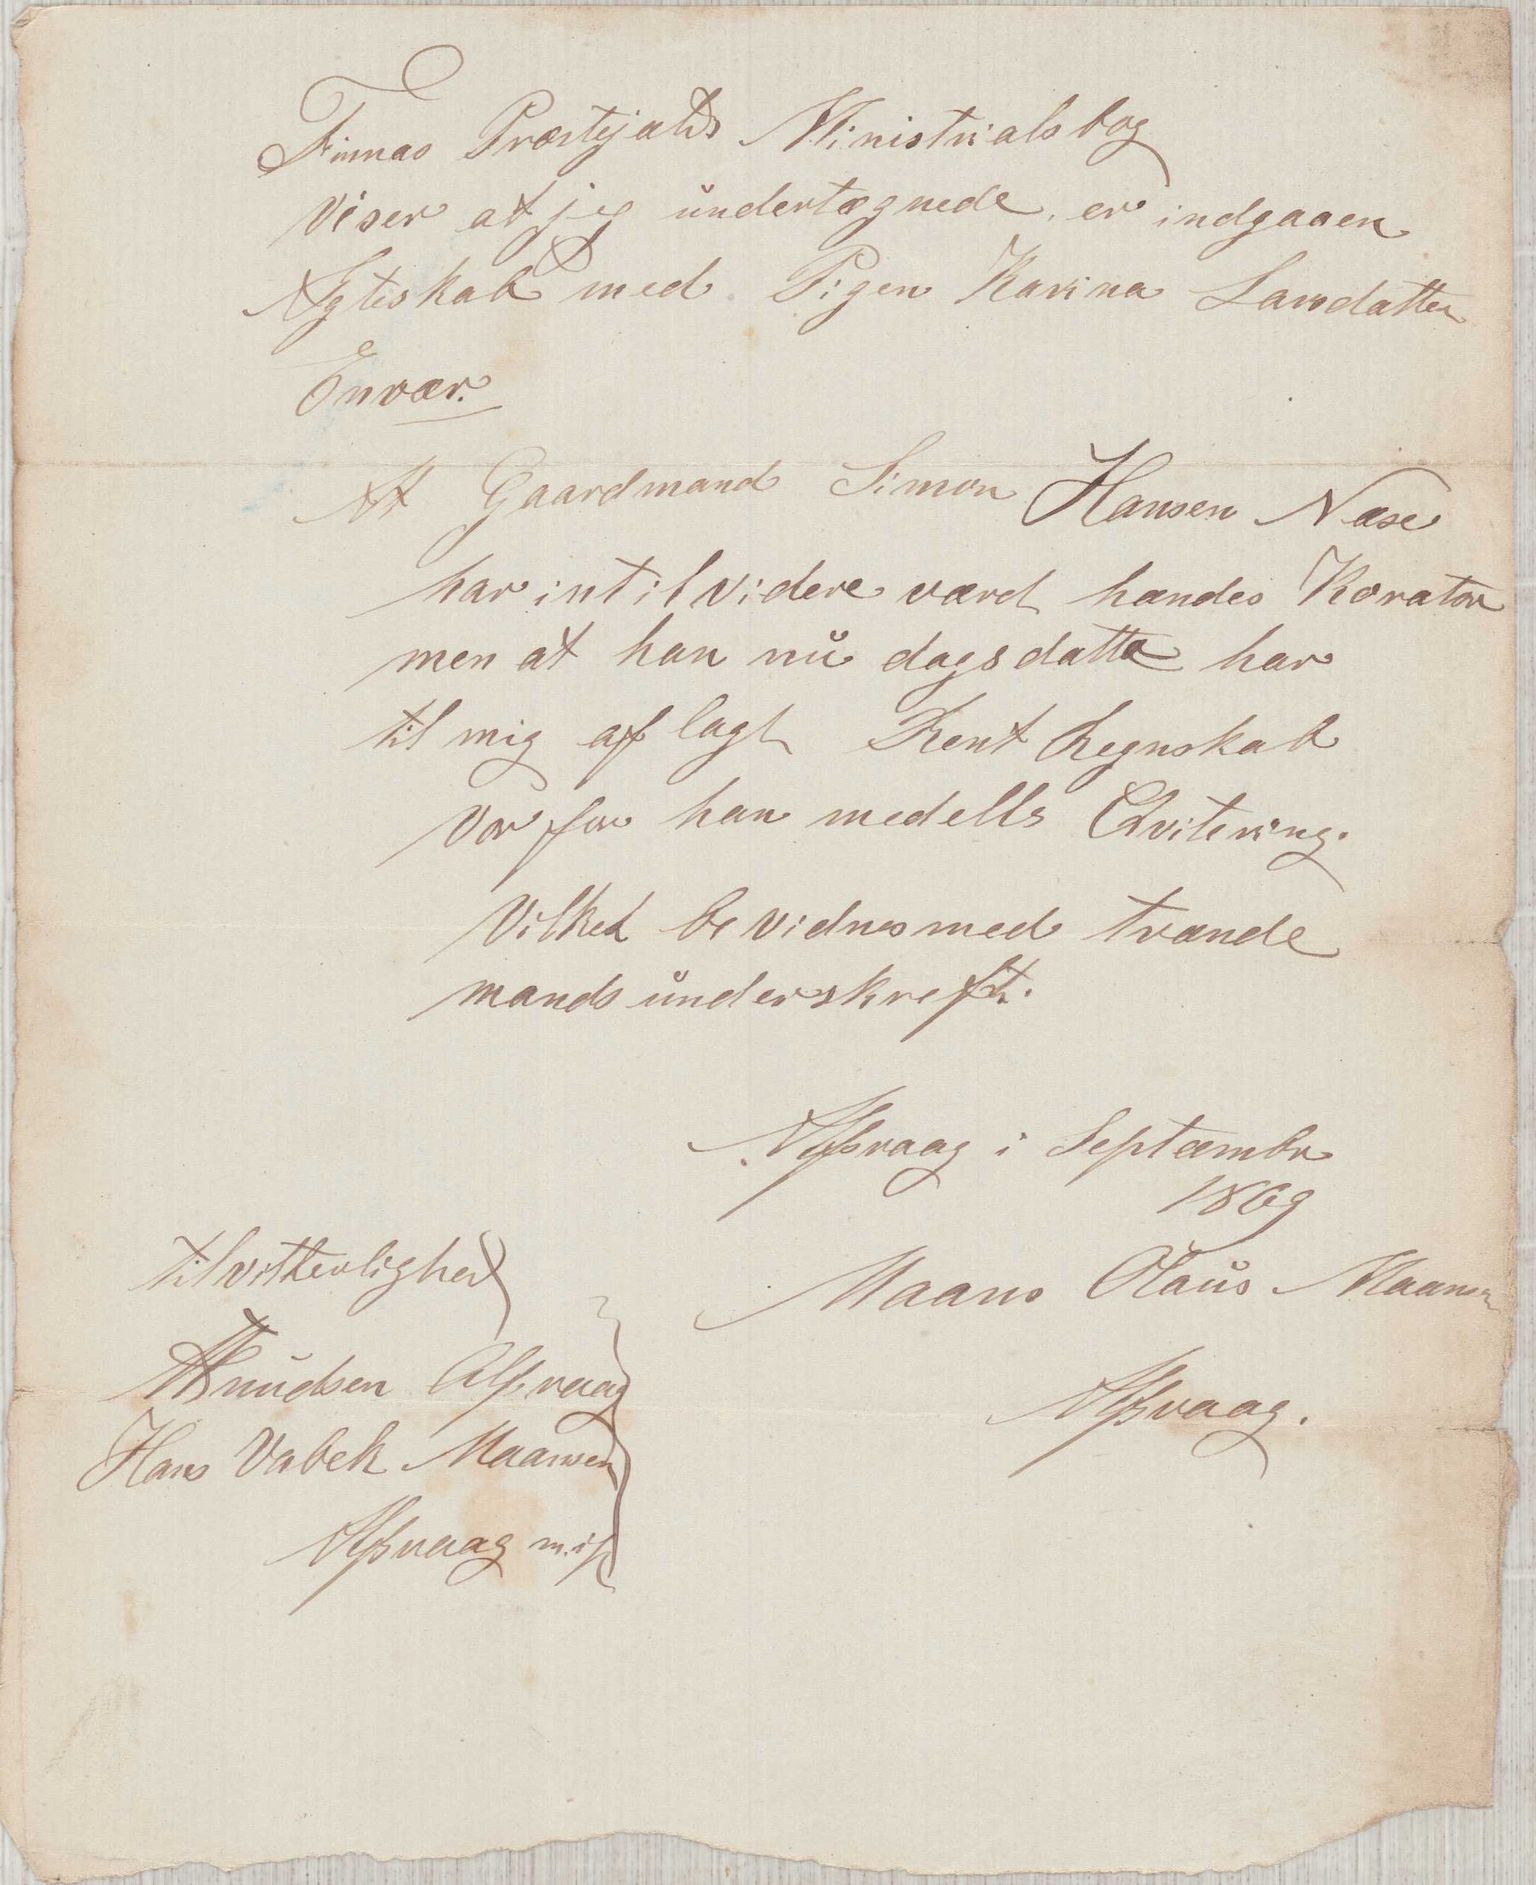 Finnas Præstejalds Ministrialsbog
viser at jeg undertægnede, er indgaaen
Ægteskab med Pigen Karina Larsdatter
Envær.
At Gaardmand Simon Hansen Næse
har intil videre værd hændes Korator
men at han nu dagsdatto har
til mig aflagt Rent Regnskab
vorfor han medells Qvitering.
Vilket bevidnes med tvænde
mands underskreft.
Alfsvaag i Septæmbr
1869
Maans Olaus Maansen
Alfsvaag.
til vitterlighed
Knudsen Alfsvaag
Hans Vabek Maansen
Alfsvaag